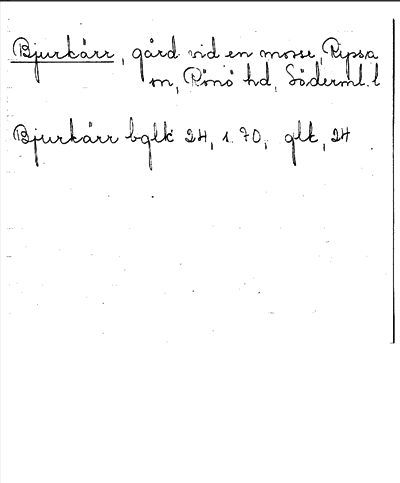 Bjurkärr, gård vid en mosse, Ripsa
sn, Rönö hd, Söderml. l
Bjurkärr bglk 24, s. 70, glk, 24